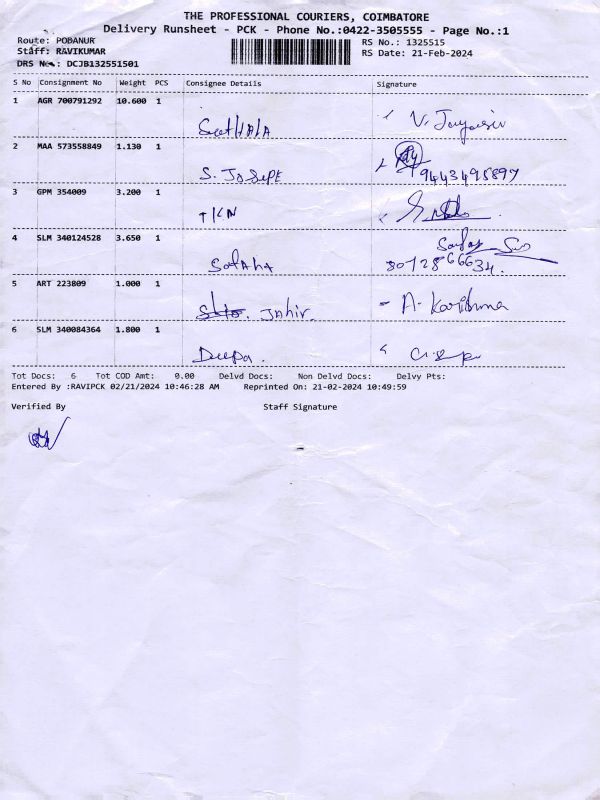 THE PROFESSIONAL COURIERS, COIMBATORE
Delivery Runsheet - PCK - Phone No.:0422-3505555 - Page No.:1
Route: PODANUR
Staff: RAVIKUMAR
DRS No.: DCJB132551501
RS No.: 1325515
RS Date: 21-Feb-2024
S No Consignment No Weight PCS Consignee Details Signature
1 AGR 700791292 10.600 1 V. Jayasir
2 MAA 573558849 1.130 1 S. JOSEPE 9443498897
3 GPM 354009 3.200 1 TKN
4 SLM 340124528 3.650 1 8072866634.
5 ART 223809 1.000 1 JAhir. A. Karishma
6 SLM 340084364 1.800 1 Deepa.
Tot Docs: 6 Tot COD Amt: 0.00 Delvd Docs: Non Delvd Docs: Delvy Pts:
Entered By :RAVIPCK 02/21/2024 10:46:28 AM Reprinted On: 21-02-2024 10:49:59
Verified By Staff Signature